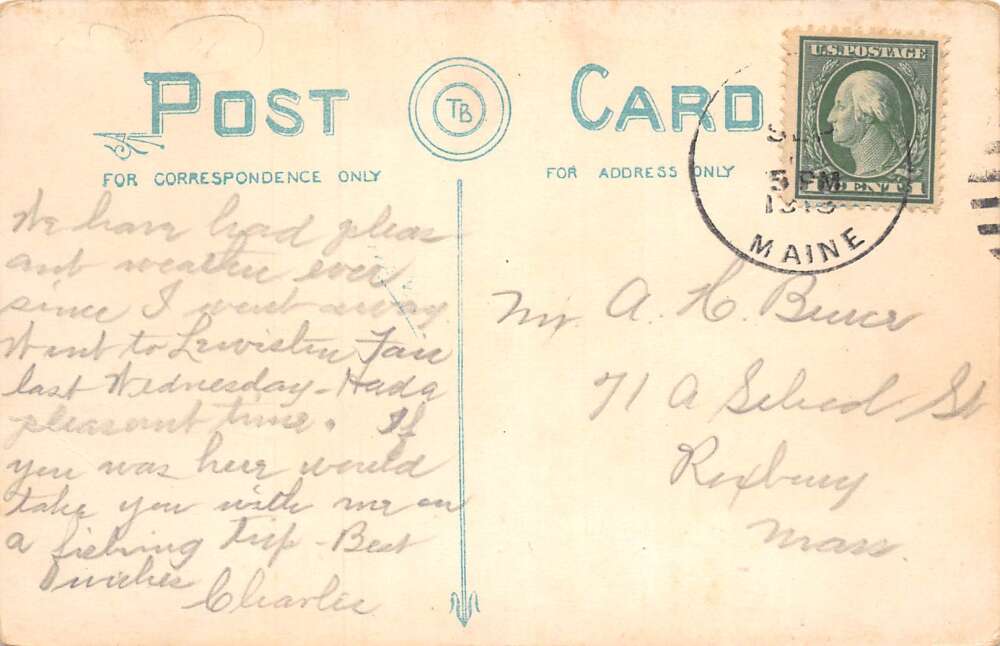 POST CARD
TB
FOR CORRESPONDENCE ONLY
FOR ADDRESS ONLY
U.S. POSTAGE
CENT 1
5 PM
MAINE
We have had pleas
ant weather ever
since I went away
Went to Lewiston Fair
last Wednesday - Had a
pleasant time. If
you was here would
take you with me on
a fishing Trip - Best
wishes
Charlie
Mr. A. H.
71 A School St
Roxbury
Mass.